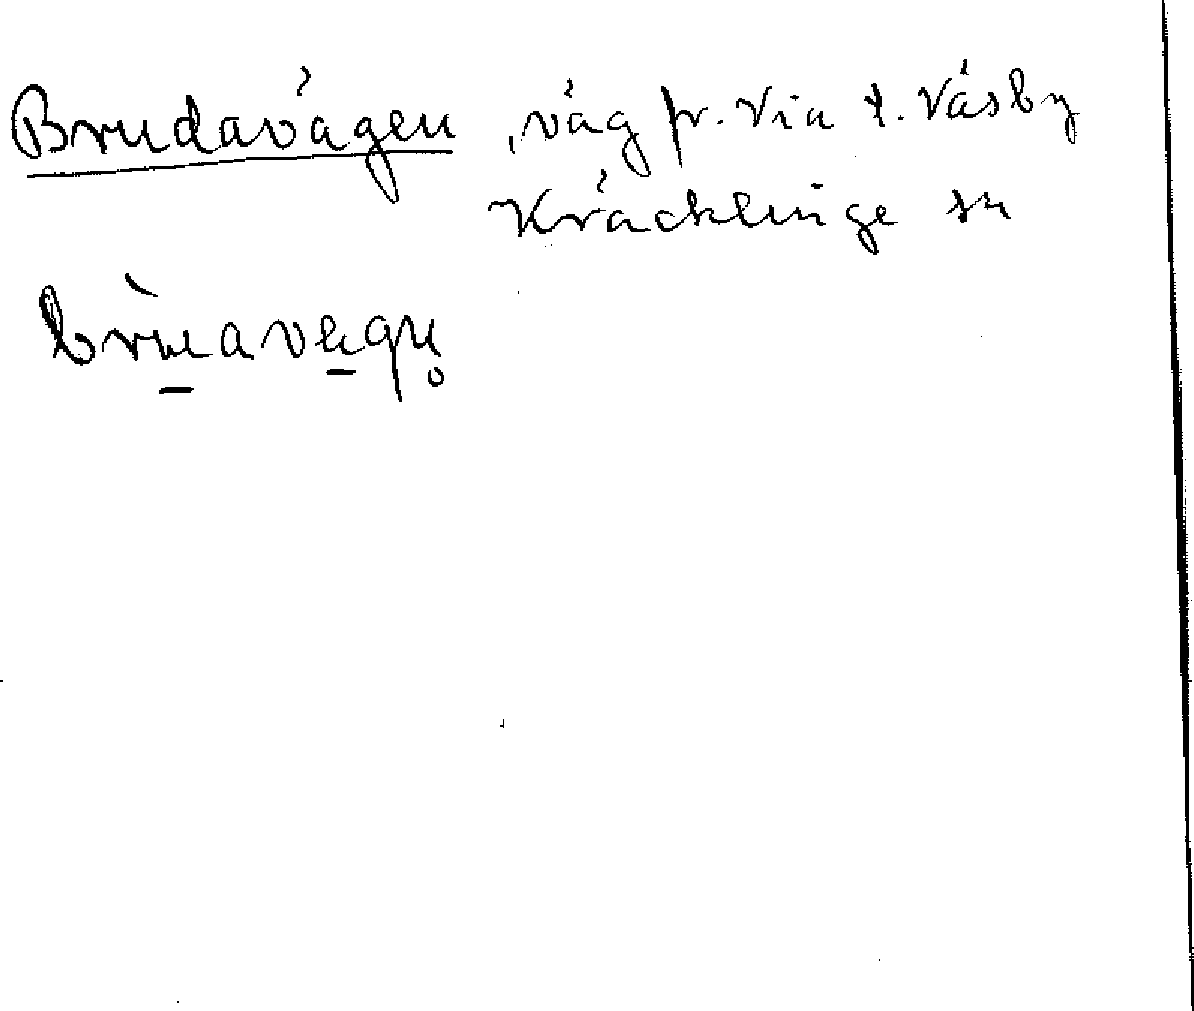 Brudavägen, väg fr. Via t. Väsby
Kräcklinge sn
brùavägn̥